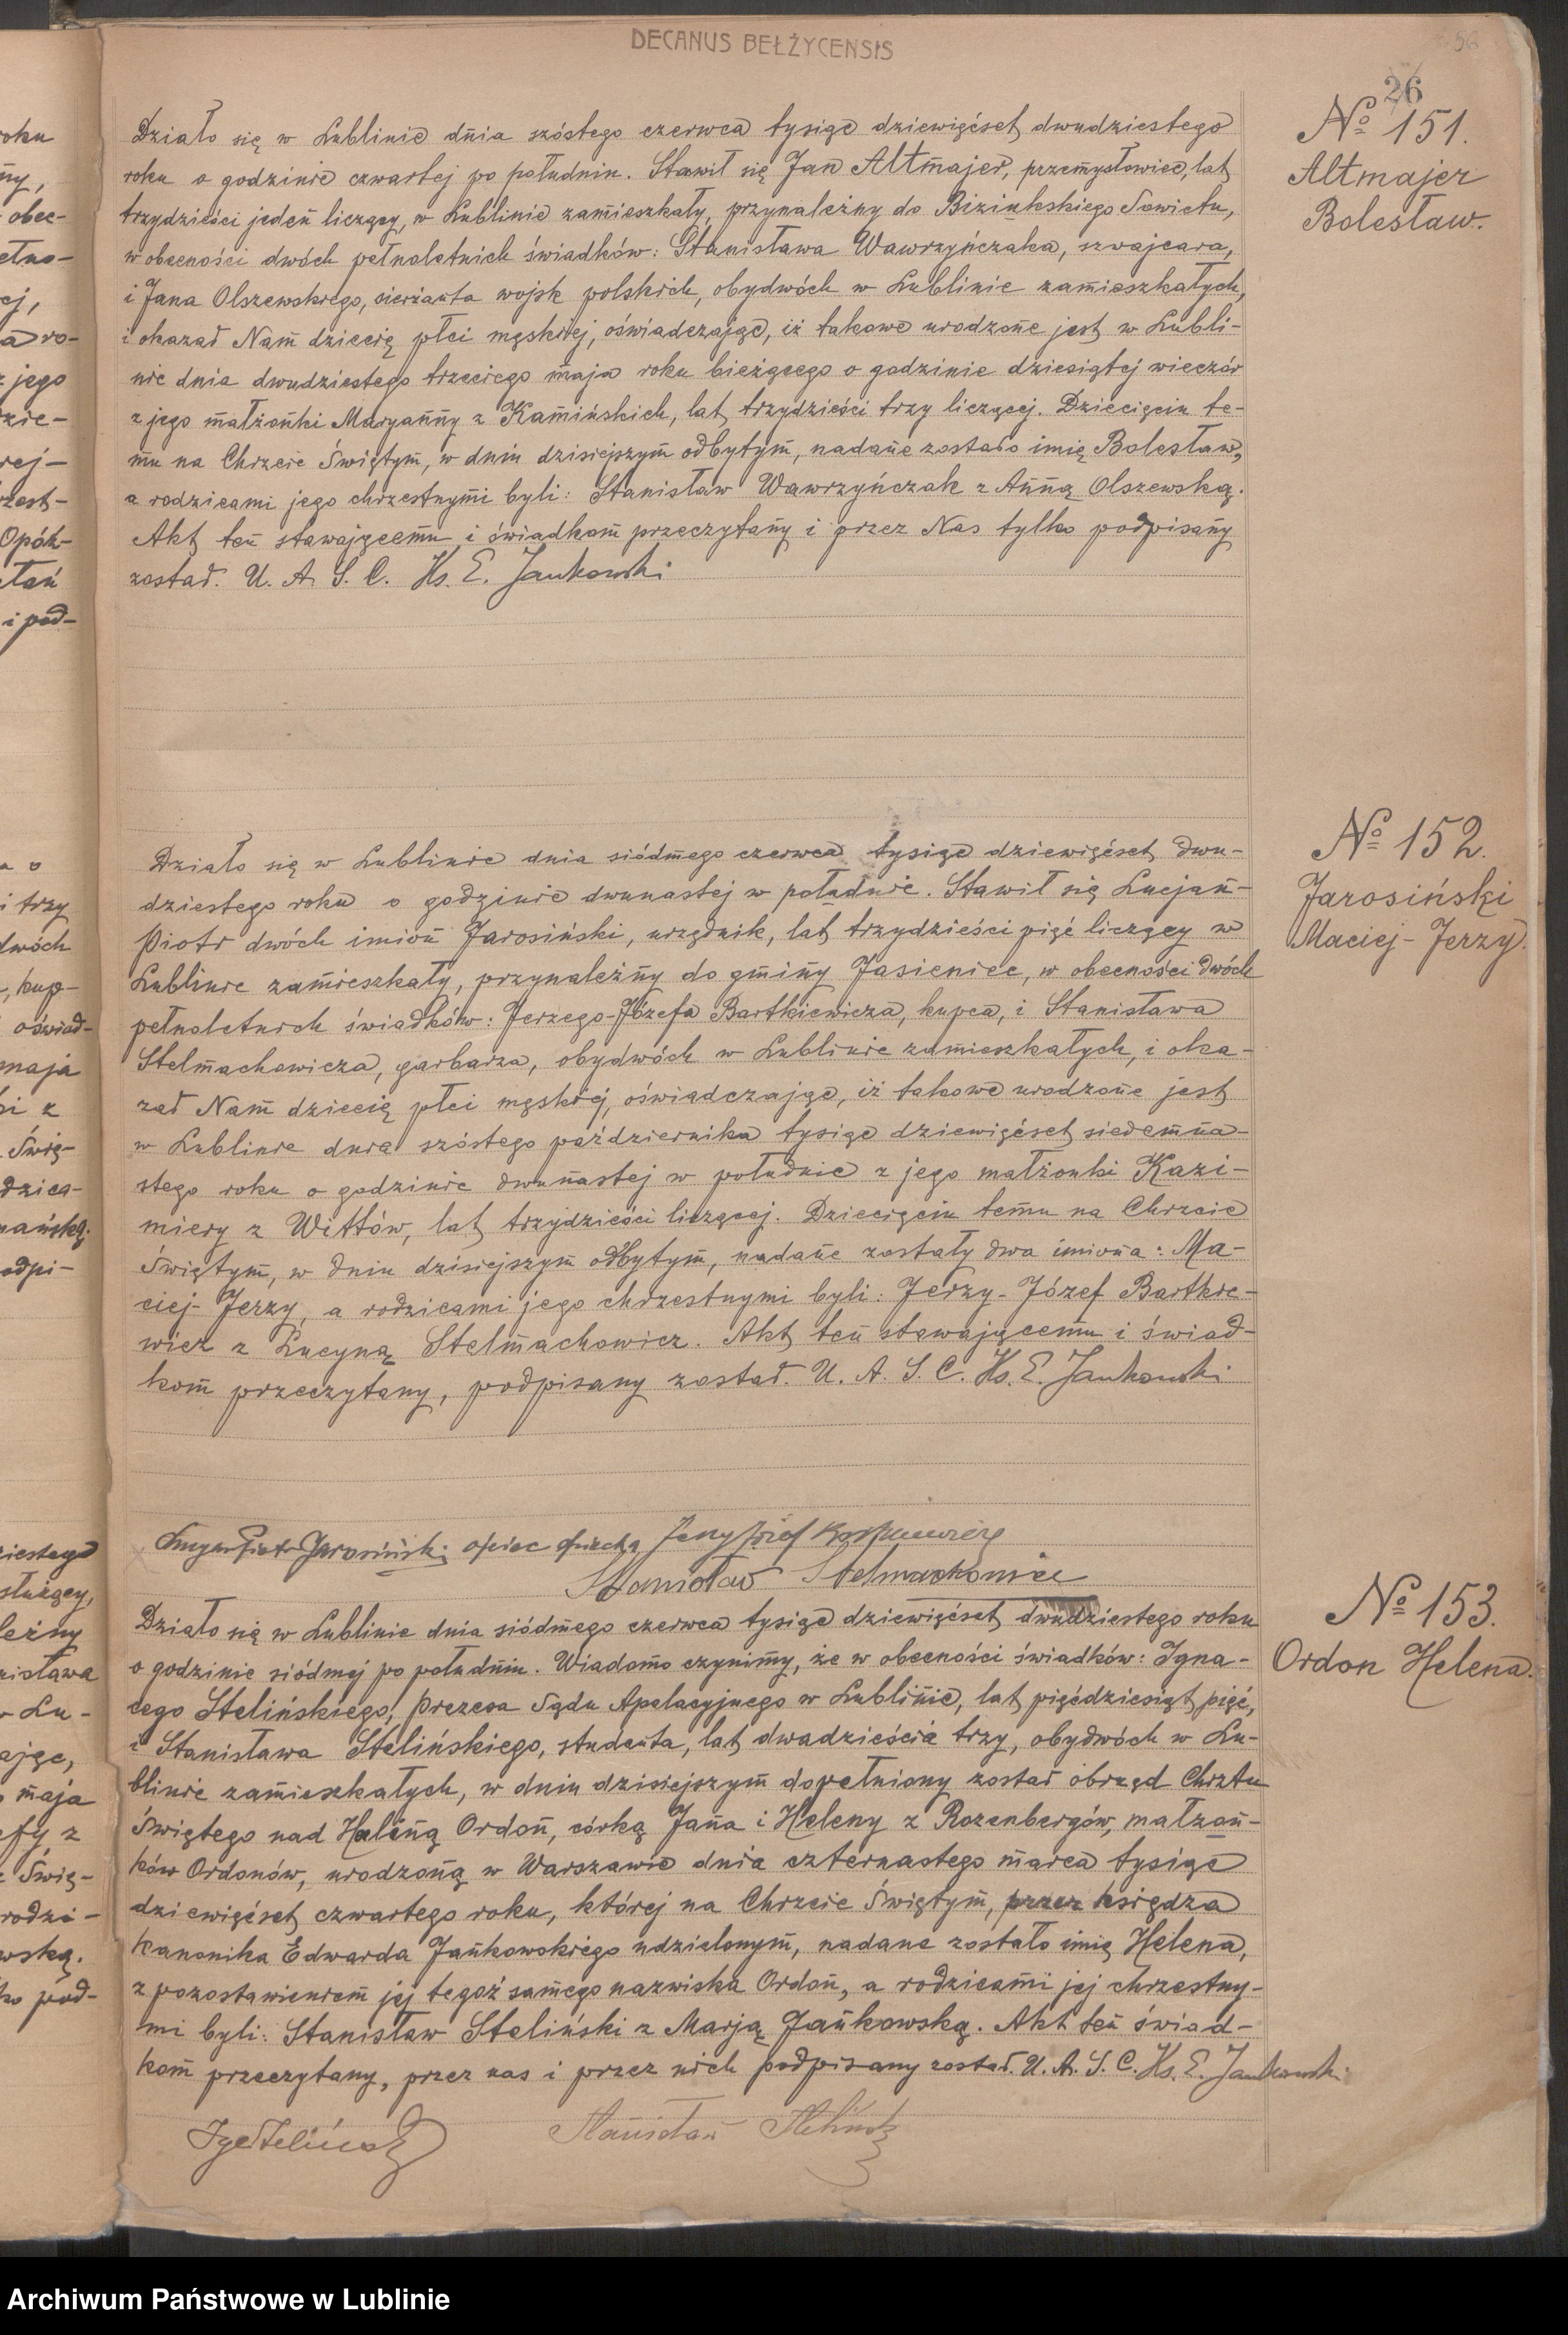 DECANUS BEŁŻYCENSIS
56
26
Działo się w Lublinie dnia szóstego czerwca tysiąc dziewięćset dwudziestego
roku o godzinie czwartej po południu. Stawił się Jan Altmajer, przemysłowiec, lat
trzydzieści jeden liczący, w Lublinie zamieszkały, przynależny do Sowietu,
w obecności dwóch pełnoletnich świadków: Stanisława Wawrzyńczaka, szwajcara,
i Jana Olszewskiego, sierżanta wojsk polskich, obydwóch w Lublinie zamieszkałych,
i okazał Nam dziecię płci męskiej, oświadczając, iż takowe urodzone jest w Lubli-
nie dnia dwudziestego trzeciego maja roku bieżącego o godzinie dziesiątej wieczór
z jego małżonki Maryanny z Kamińskich, lat trzydzieści trzy liczącej. Dziecięciu te-
mu na Chrzcie Świętym, w dniu dzisiejszym odbytym, nadane zostało imię Bolesław,
a rodzicami jego chrzestnymi byli: Stanisław Wawrzyńczak z Anną Olszewską.
Akt ten stawającemu i świadkom przeczytany i przez Nas tylko podpisany
został. U. A. S. C. Ks. E. Jankowski
№ 151.
Altmajer
Bolesław.
Działo się w Lublinie dnia siódmego czerwca tysiąc dziewięćset dwu-
dziestego roku o godzinie dwunastej w południe. Stawił się Lucjan-
Piotr dwóch imion Jarosiński, urzędnik, lat trzydzieści pięć liczący w
Lublinie zamieszkały, przynależny do gminy Jasieniec, w obecności dwóch
pełnoletnich świadków: Jerzego-Józefa Bartkiewicza, kupca, i Stanisława
Stelmachowicza, garbarza, obydwóch w Lublinie zamieszkałych, i oka-
zał Nam dziecię płci męskiej, oświadczając, iż takowe urodzone jest
w Lublinie dnia szóstego października tysiąc dziewięćset siedemna-
stego roku o godzinie dwunastej w południe z jego małżonki Kazi-
miery z Wittów, lat trzydzieści liczącej. Dziecięciu temu na Chrzcie
Świętym, w dniu dzisiejszym odbytym, nadane zostały dwa imiona: Ma-
ciej-Jerzy, a rodzicami jego chrzestnymi byli: Jerzy-Józef Bartkie-
wicz z Lucyną Stelmachowicz. Akt ten stawającemu i świad-
kom przeczytany, podpisany został. U. A. S. C. Ks. E. Jankowski
Lucyan Piotr Jarosiński ojciec dziecka Jerzy Józef Bartkiewicz
Stanisław Stelmachowicz
№ 152.
Jarosiński
Maciej-Jerzy.
Działo się w Lublinie dnia siódmego czerwca tysiąc dziewięćset dwudziestego roku
o godzinie siódmej po południu. Wiadomo czynimy, że w obecności świadków: Igna-
cego Stelińskiego, prezesa Sądu Apelacyjnego w Lublinie, lat pięćdziesiąt pięć,
i Stanisława Stelińskiego, studenta, lat dwadzieścia trzy, obydwóch w Lu-
blinie zamieszkałych, w dniu dzisiejszym dopełniony został obrzęd Chrztu
Świętego nad Heleną Ordon, córką Jana i Heleny z Rozenbergów, małżon-
ków Ordonów, urodzoną w Warszawie dnia czternastego marca tysiąc
dziewięćset czwartego roku, której na Chrzcie Świętym, przez księdza
kanonika Edwarda Jankowskiego udzielonym, nadane zostało imię Helena,
z pozostawieniem jej tegoż samego nazwiska Ordon, a rodzicami jej chrzestny-
mi byli: Stanisław Steliński z Marją Jankowską. Akt ten świad-
kom przeczytany, przez nas i przez nich podpisany został. U. A. S. C. Ks. E. Jankowski
Ig Steliński Stanisław Steliński
№ 153.
Ordon Helena.
Archiwum Państwowe w Lublinie